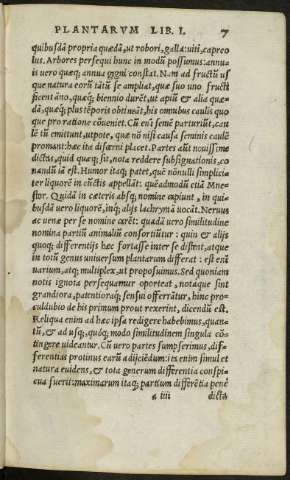 PLANTARVM LIB. I. 7
quibusdā propria quædā, ut robori, galla: uiti, capreo
lus. Arbores persequi hunc in modū possumus: annua
is uero quæq; annua gigni constat. Nam ad fructū us
que natura eorū tātū se ampliat, quæ suo uno fructū
ficent āno, quæq; biennio durēt, ut apiū & alia quæ
dā, quæq; plus tēporis obtineāt, his omnibus caulis quo
que pro ratione conueniet. Cū eni semē parturiūt, cau
lē tū emittunt, utpote, quæ nō nisi causa seminis caulē
promant: hæc ita disseri placet. Partes aūt nouissime
dictas, quid quæq; sit, nota reddere subsignationis, co
nandū iā est. Humor itaq; patet, quē nonnulli simplici
ter liquorē in cūctis appellāt: quēadmodū etiā Mne
stor. Quidā in cæteris absq; nomine capiunt, in qui
busdā uero liquorē, inq; alijs lachrymā uocāt. Neruus
ac uena per se nomine carēt: quadā uero similitudine
nomina partiū animaliū consortiūtur: quin & alijs
quoq; differentijs hæc fortasse inter se distent, atque
in totū genus uniuersum plantarum differat: est eni
uarium, atq; multiplex, ut proposuimus. Sed quoniam
notis ignota persequamur oportet, notaque sint
grandiora, patentioraq; sensu offerātur, hinc pro
culdubio de his primum prout rexerint, dicendū est.
Reliqua enim ad hæc ipsa redigere habebimus, quan
tū, & ad usq;, quóq; modo similitudinem singula cō
tingere uideantur. Cū uero partes sumpserimus, dif
ferentias protinus earū adijciēdum: ita enim simul et
natura euidens, & tota generum differentia conspi
cua fuerit: maximarum itaq; partium differētia penè
a iiii dicta